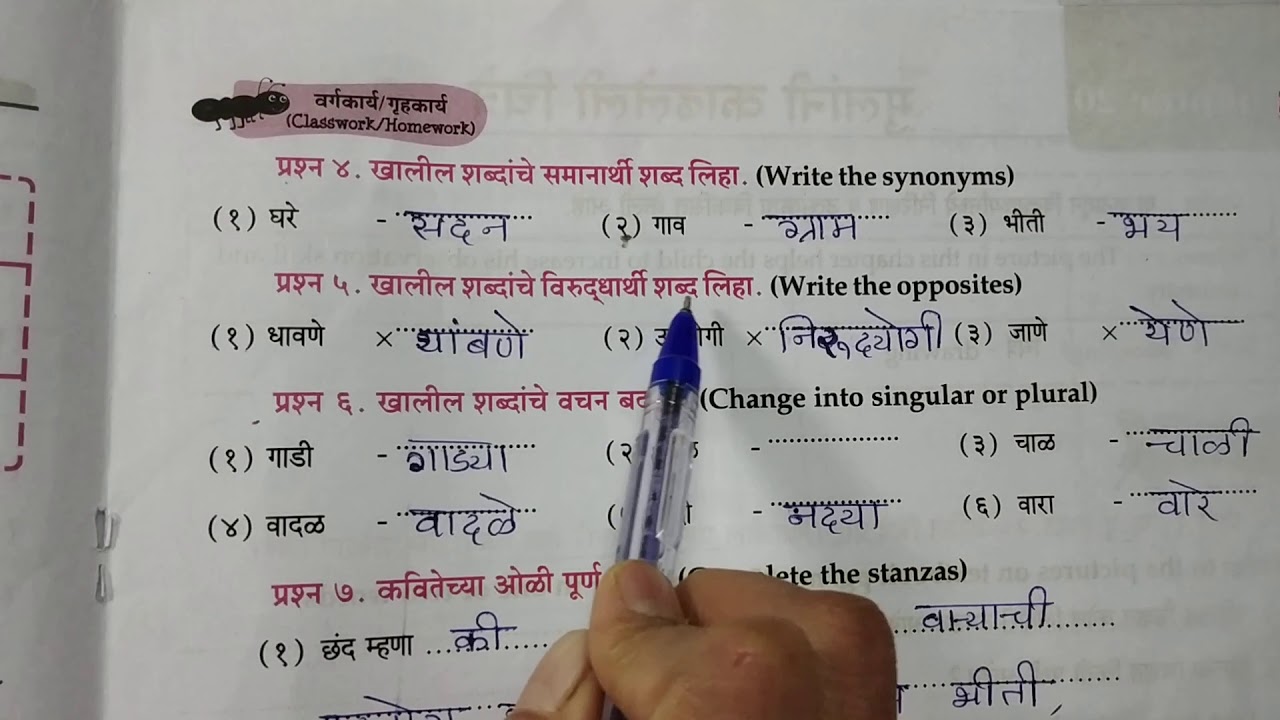 वर्गकार्य/गृहकार्य
(Classwork/Homework)
प्रश्न ४. खालील शब्दांचे समानार्थी शब्द लिहा. (Write the synonyms)
(१) घरे - सदन (२) गाव - ग्राम (३) भीती - भय
प्रश्न ५. खालील शब्दांचे विरुद्धार्थी शब्द लिहा. (Write the opposites)
(१) धावणे × थांबणे (२) × निरूद्योगी (३) जाणे × येणे
प्रश्न ६. खालील शब्दांचे वचन (Change into singular or plural)
(१) गाडी - गाड्या - (३) चाळ - चाळी
(४) वादळ - वादळे - नद्या (६) वारा - वारे
प्रश्न ७. कवितेच्या ओळी पूर्ण the stanzas)
(१) छंद म्हणा ... की ...... वाऱ्याची
भीती,